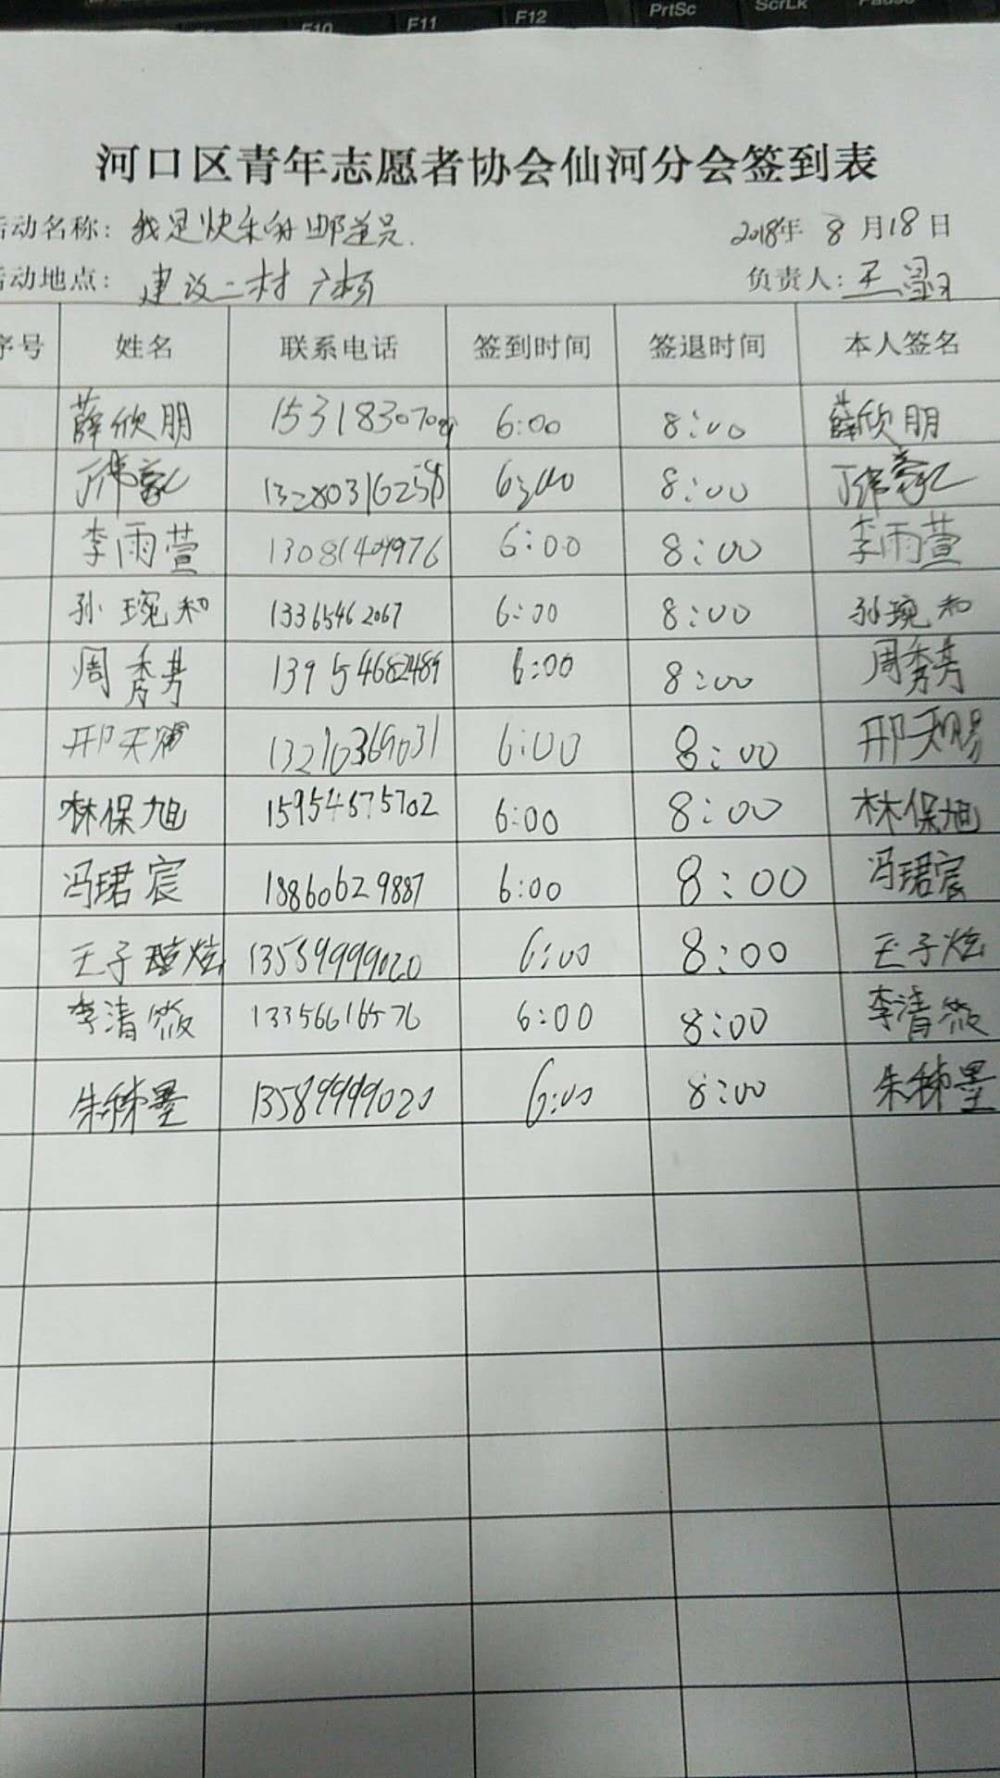 F10 F11 F12 PrtSc ScrLk Pause
河口区青年志愿者协会仙河分会签到表
活动名称: 我是快乐的邮递员. 2018年 8月18日
活动地点: 建设二村广场 负责人: 王
序号 姓名 联系电话 签到时间 签退时间 本人签名
薛欣朋 15318307 6:00 8:00 薛欣朋
丁伟豪 13280316258 6:00 8:00 丁伟豪
李雨萱 13081404976 6:00 8:00 李雨萱
孙琬和 13365462067 6:00 8:00 孙琬和
周秀芳 6:00 8:00 周秀芳
邢天赐 13210369031 6:00 8:00 邢天赐
林保旭 15954675702 6:00 8:00 林保旭
冯珺宸 18860629887 6:00 8:00 冯珺宸
王子炫 13589999020 6:00 8:00 王子炫
李清筱 13356616576 6:00 8:00 李清筱
朱墨 13589999020 6:00 8:00 朱墨